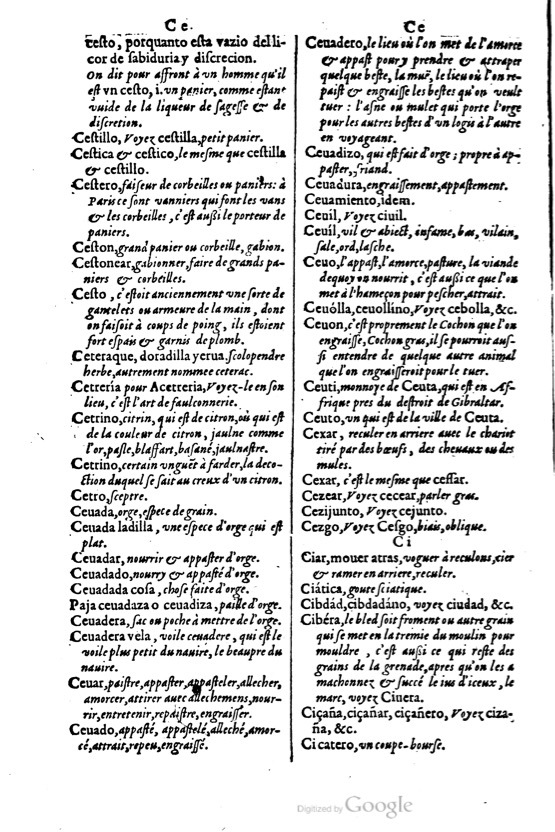 Ce.
cesto, porquanto esta vazio del li-
cor de sabiduria y discrecion.
On dit pour affront à vn homme qu'il
est vn cesto, i. vn panier, comme estant
vuide de la liqueur de sagesse & de
discretion.
Cestillo, Voyez cestilla, petit panier.
Cestica & cestico, le mesme que cestilla
& cestillo.
Cestero, faiseur de corbeilles ou paniers: à
Paris ce sont vanniers qui font les vans
& les corbeilles, c'est aussi le porteur de
paniers.
Ceston, grand panier ou corbeille, gabion.
Cestonear, gabionner, faire de grands pa-
niers & corbeilles.
Cesto, c'estoit anciennement vne sorte de
gantelets ou armeure de la main, dont
on faisoit à coups de poing, ils estoient
fort espais & garnis de plomb.
Ceteraque, doradilla yerua, scolopendre
herbe, autrement nommee ceterac.
Cetreria pour Acetreria, Voyez-le en son
lieu, c'est l'art de faulconnerie.
Cettrino, citrin, qui est de citron, où qui est
de la couleur de citron, jaulne comme
l'or, pasle, blaffart, basané, jaulnastre.
Cettrino, certain vnguët à farder, la deco-
ction duquel se fait au creux d'vn citron.
Cetro, sceptre.
Ceuada, orge, espece de grain.
Ceuada ladilla, vne espece d'orge qui est
plat.
Ceuadar, nourrir & appaster d'orge.
Ceuadado, nourry & appasté d'orge.
Ceuadada cosa, chose faite d'orge.
Paja ceuadaza o ceuadiza, paille d'orge.
Ceuadera, sac ou poche à mettre de l'orge.
Ceuadera vela, voile ceuadere, qui est le
voile plus petit du nauire, le beaupre du
nauire.
Ceuar, paistre, appaster, appasteler, allecher,
amorcer, attirer auec allechemens, nour-
rir, entretenir, repaistre, engraisser.
Ceuado, appasté, appastelé, alleché, amor-
cé, attrait, repeu, engraissé.
Ce
Ceuadero, le lieu où l'on met de l'amorce
& appast pour y prendre & attraper
quelque beste, la muë, le lieu où l'on re-
paist & engraisse les bestes qu'on veult
tuer: l'asne ou mulet qui porte l'orge
pour les autres bestes d'vn logis à l'autre
en voyageant.
Ceuadizo, qui est fait d'orge; propre à ap-
paster, friand.
Ceuadura, engraissement, appastement.
Ceuamiento, idem.
Ceuil, Voyez ciuil.
Ceuil, vil & abiect, infame, bas, vilain,
sale, ord, lasche.
Ceuo, l'appast, l'amorce, pasture, la viande
dequoy on nourrit, c'est aussi ce que l'on
met à l'hameçon pour pescher, attrait.
Ceuólla, ceuollino, Voyez cebolla, &c.
Ceuon, c'est proprement le Cochon que l'on
engraisse, Cochon gras, il se pourroit aus-
si entendre de quelque autre animal
que l'on engraisseroit pour le tuer.
Ceuti, monnoye de Ceuta, qui est en Af-
frique pres du destroit de Gibraltar.
Ceuto, vn qui est de la ville de Ceuta.
Cexar, reculer en arriere auec le chariot
tiré par des bœufs, des cheuaux ou des
mules.
Cexar, c'est le mesme que cessar.
Cezear, Voyez cecear, parler gras.
Cezijunto, Voyez cejunto.
Cezgo, Voyez Cesgo, biais, oblique.
Ci
Ciar, mouer atras, voguer à reculons, cier
& ramer en arriere, reculer.
Ciática, goute sciatique.
Cibdád, cibdadáno, voyez ciudad, &c.
Cibéra, le bled soit froment ou autre grain
qui se met en la tremie du moulin pour
mouldre, c'est aussi ce qui reste des
grains de la grenade, apres qu'on les a
machonnez & succé le ius d'iceux, le
marc, voyez Ciuera.
Ciçaña, ciçañar, ciçañero, Voyez ciza-
ña, &c.
Cicatero, vn coupe-bourse.
Digitized by Google